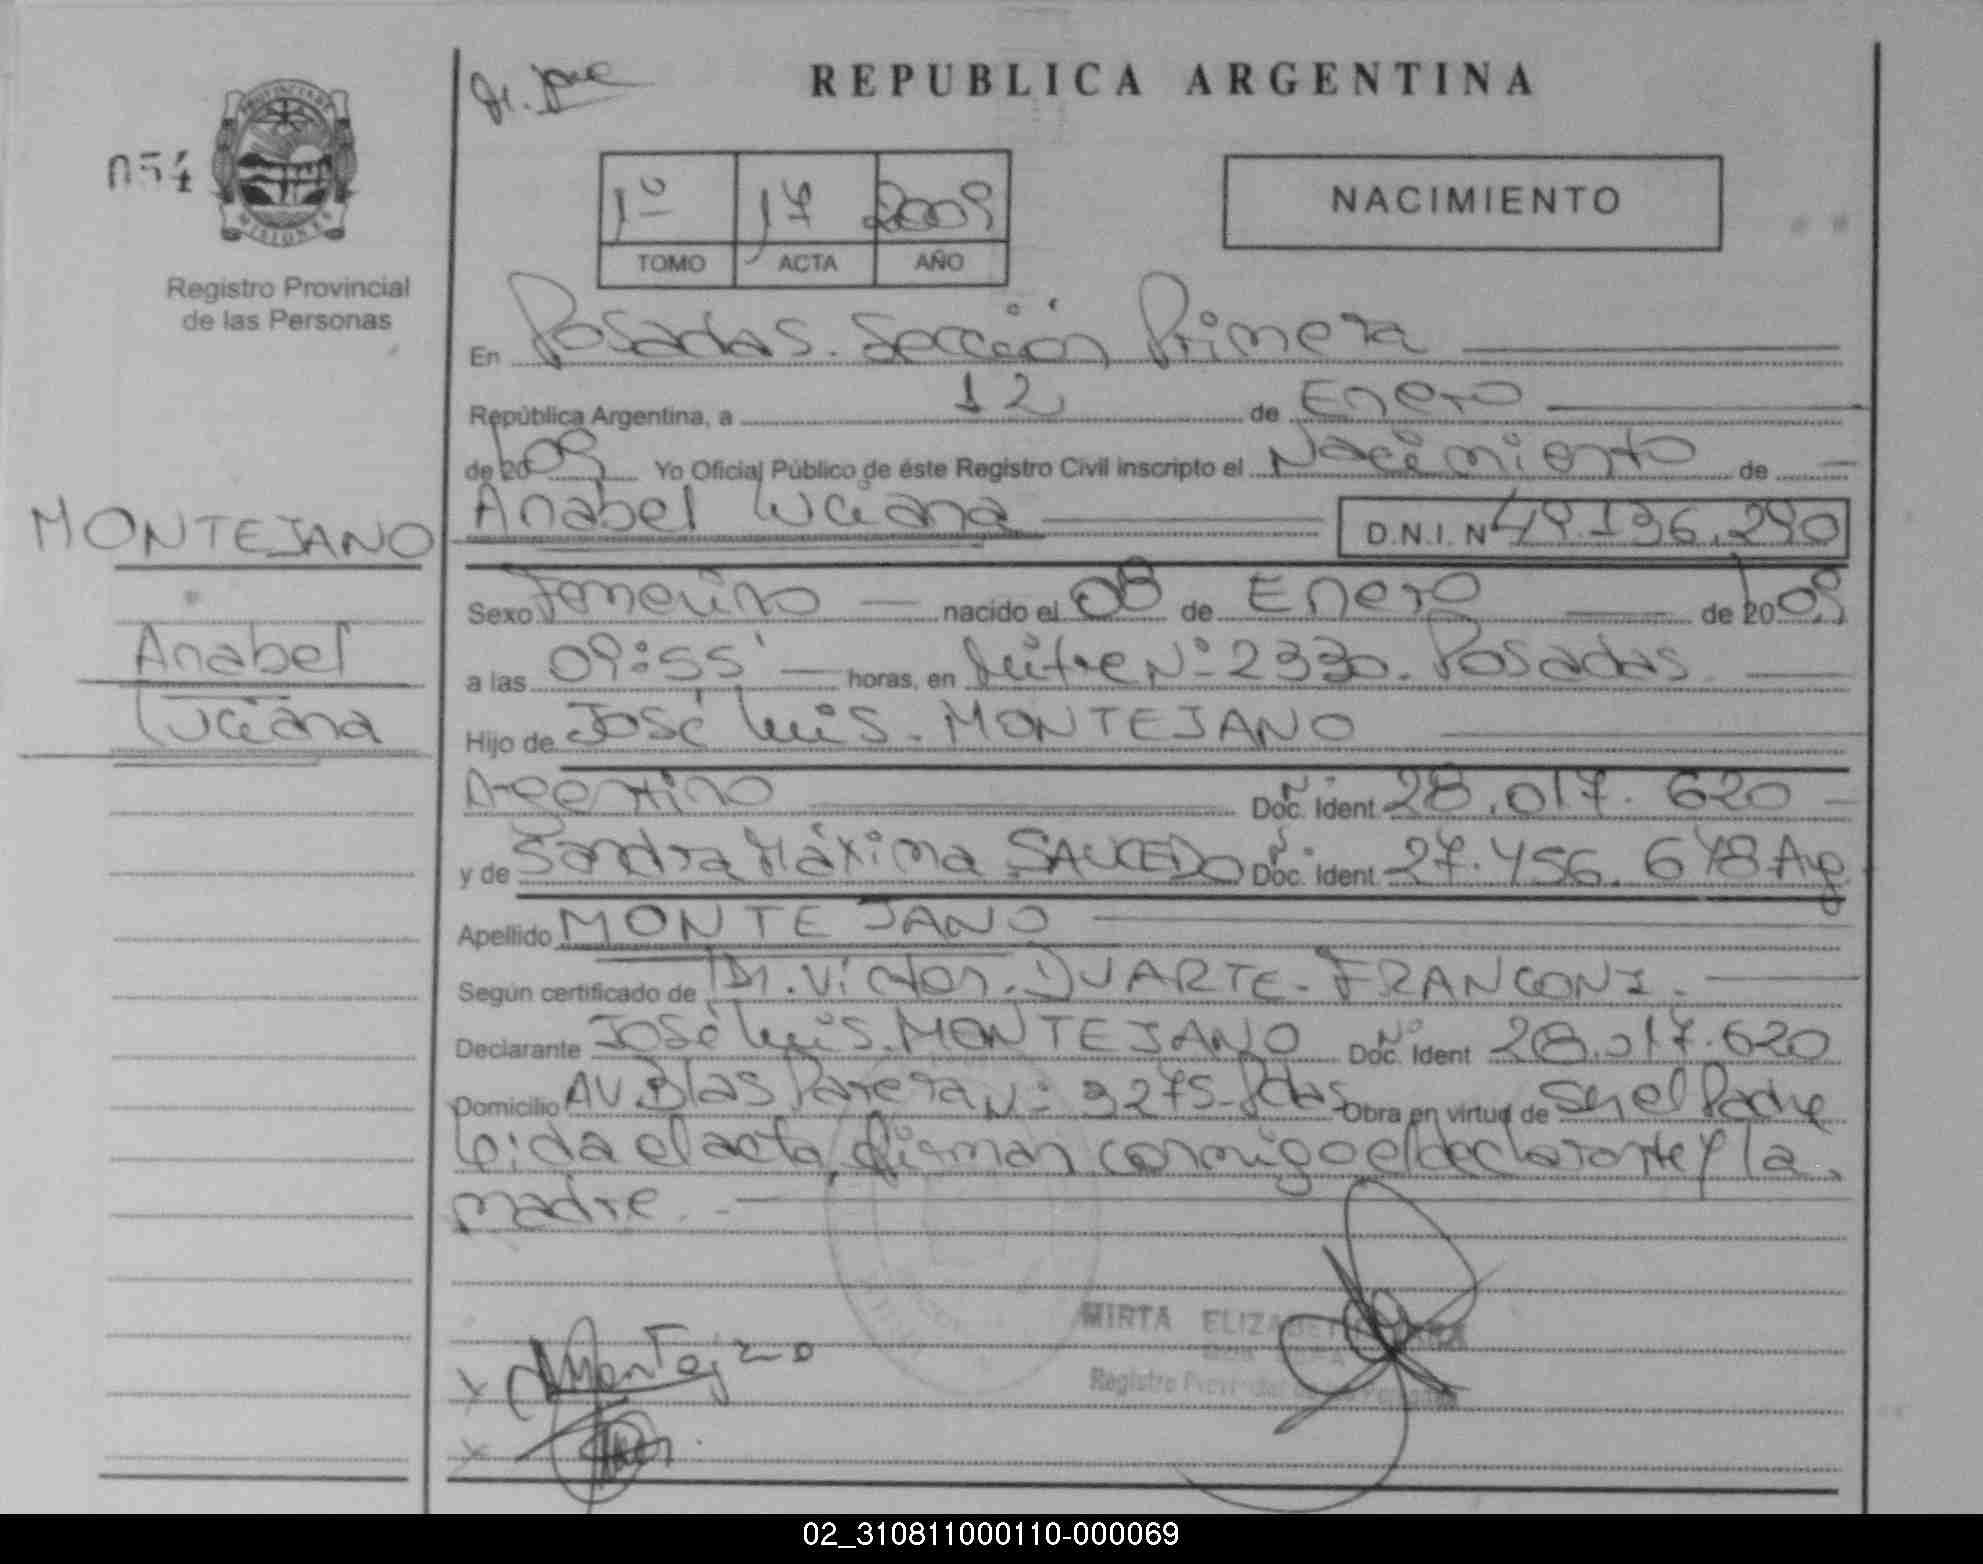 REPUBLICA ARGENTINA
054
PROVINCIA DE
MISIONES
Registro Provincial
de las Personas
1º 17 2009
TOMO ACTA AÑO
NACIMIENTO
En Posadas. Sección Primera
República Argentina, a 12 de Enero
de 2009 Yo Oficial Público de éste Registro Civil inscripto el Nacimiento de
Anabel Luciana D.N.I. Nº 49.136.290
MONTEJANO
Anabel
Luciana
Sexo Femenino nacido el 08 de Enero de 2009
a las 09:55' horas, en Mitre Nº 2330. Posadas
Hijo de José Luis. MONTEJANO
Argentino Nº Doc. Ident 28.017.620
y de Sandra Máxima SAUCEDO Doc. Ident 27.456.678 Arg
Apellido MONTEJANO
Según certificado de Dr. Víctor. DUARTE - FRANCONI.
Declarante José Luis. MONTEJANO Nº Doc. Ident 28.017.620
Domicilio AV. Blas Parera Nº 3275 - Pdas Obra en virtud de Ser el Padre
Leida el acta, firman conmigo el declarante y la
madre. -
MIRTA ELIZABETH
Registro Provincial de las Personas
x Montejano
x
02_310811000110-000069